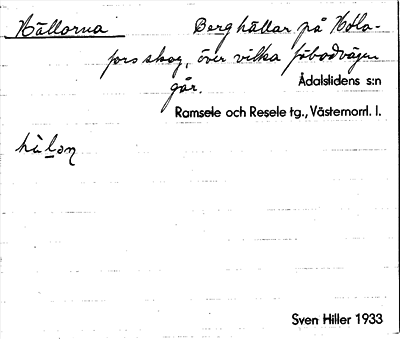 Hällorna Berghällar på Hola-
fors skog, över vilka fäbodvägen
går.
Ådalslidens s:n
Ramsele och Resele tg., Västernorrl. l.
Sven Hiller 1933